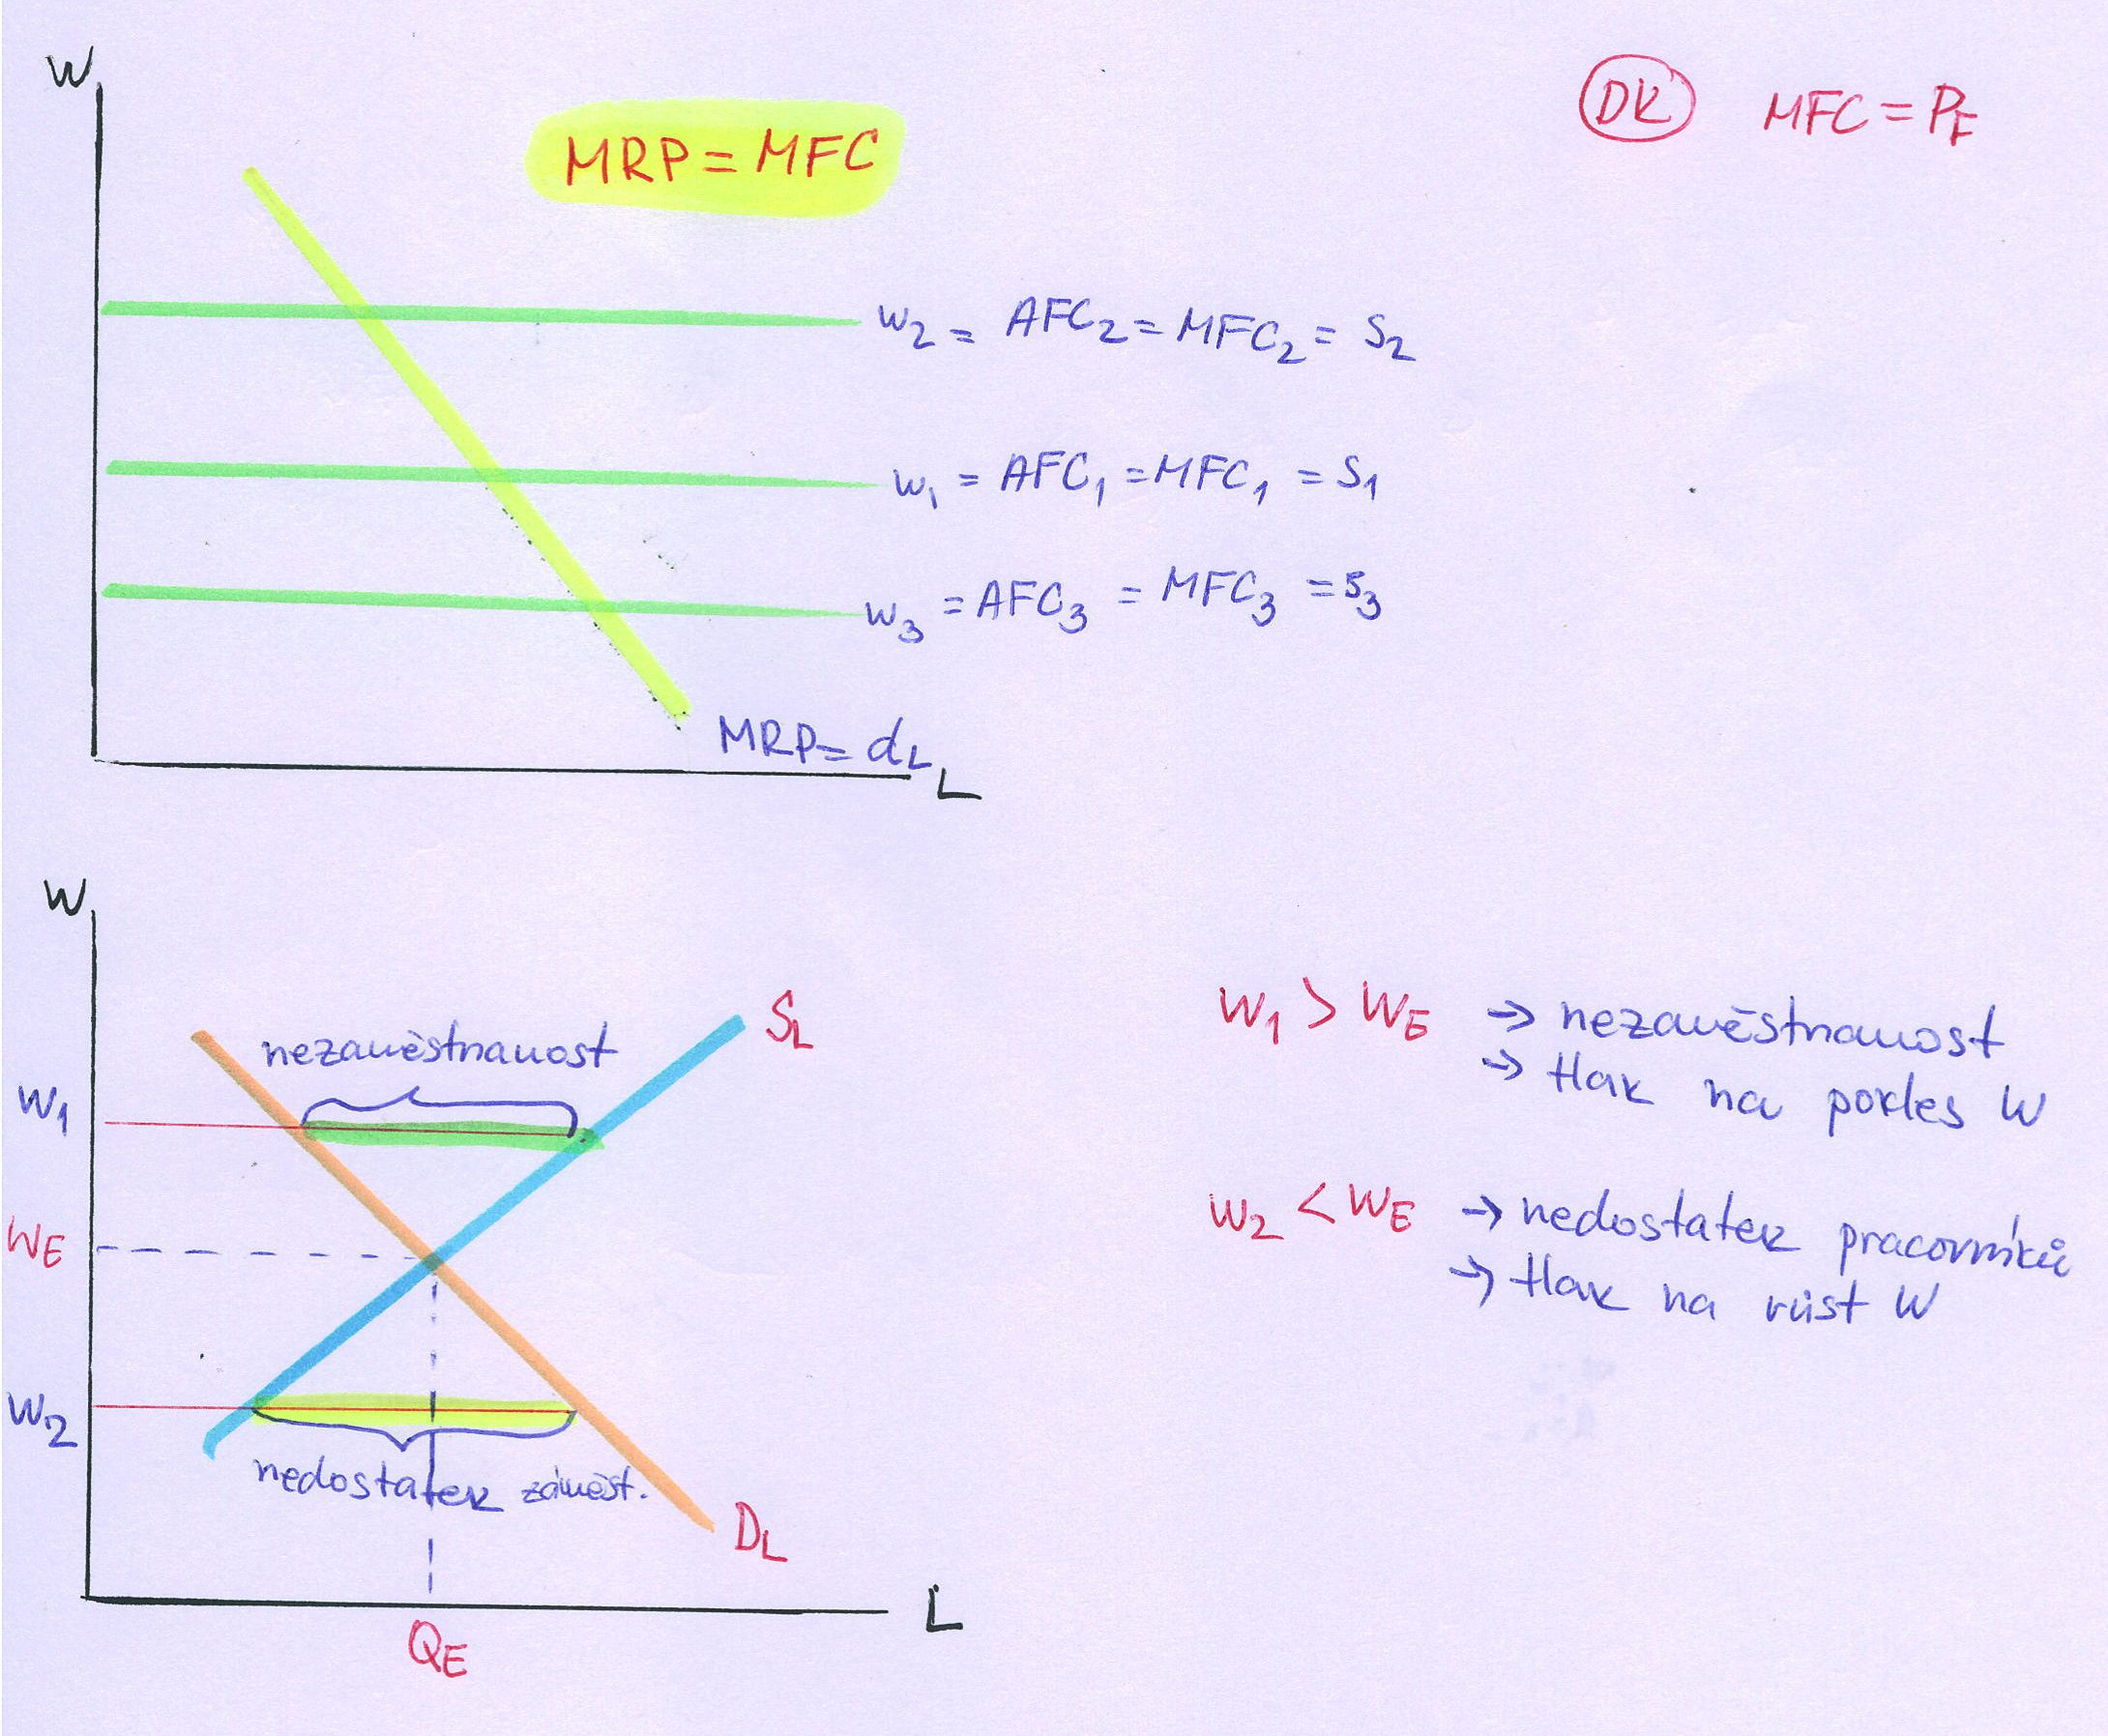 W
MRP = MFC
DK MFC = PF
w2 = AFC2 = MFC2 = S2
w1 = AFC1 = MFC1 = S1
w3 = AFC3 = MFC3 = S3
MRP = dL
L
W
SL
nezaměstnanost
W1
WE
W2
nedostatek zaměst.
DL
L
QE
W1 > WE → nezaměstnanost
→ tlak na pokles W
W2 < WE → nedostatek pracovníků
→ tlak na růst W